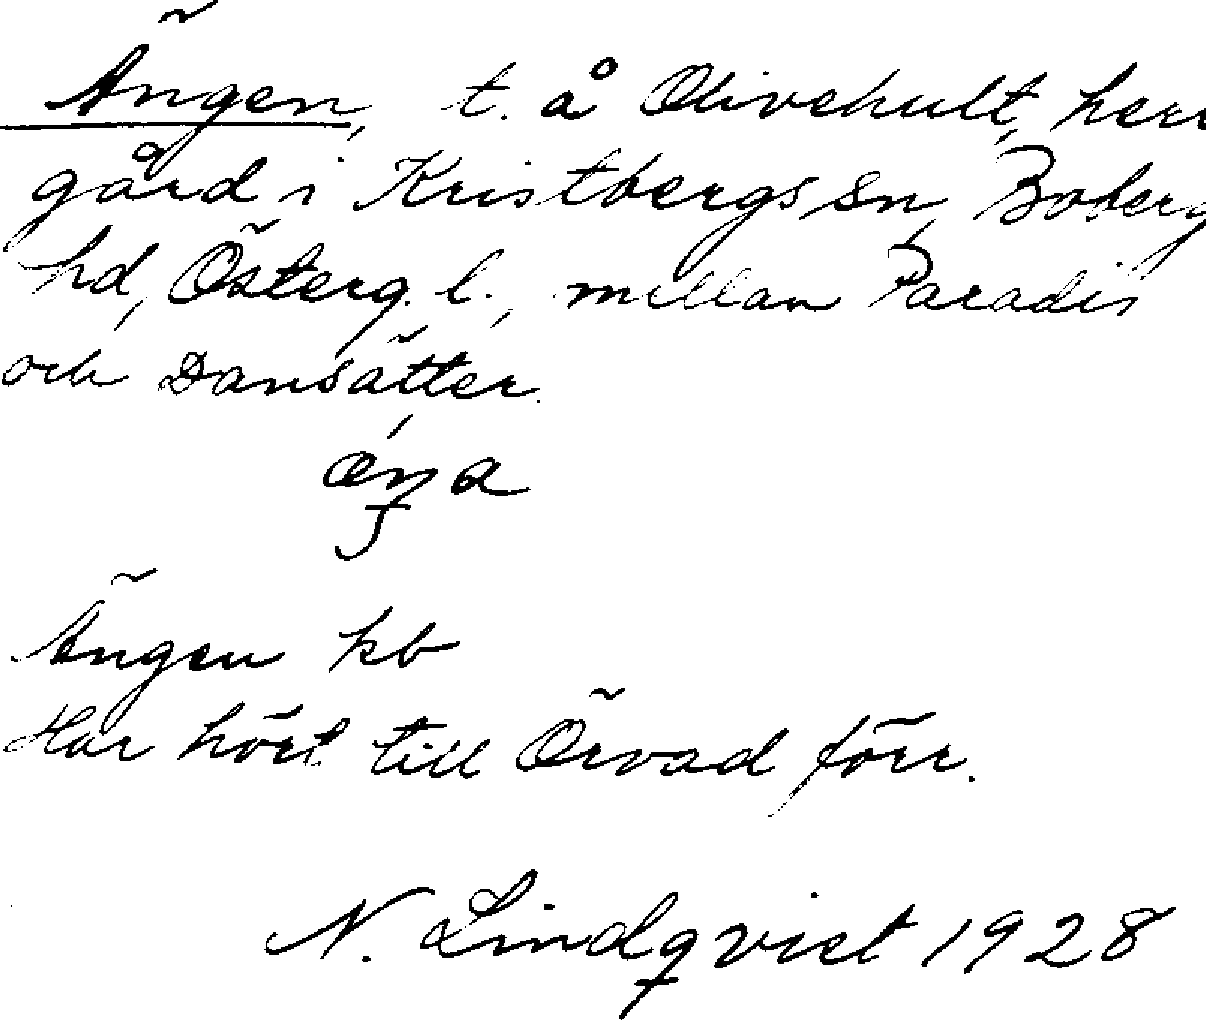 Ängen, t. å Olivehult, herr
gård i Kristbergs sn, Boberg
hd, Österg. l., mellan Paradis
och Dansätter.
Ängen kb
Har hört till Örvad förr.
N. Lindqvist 1928